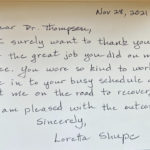 Nov 28, 2021
ear Dr. Thompson,
surely want to thank you
the great job you did on m
ee. You were so kind to work
e in to your busy schedule a
t me on the road to recover
am pleased with the outco
Sincerely,
Loreta